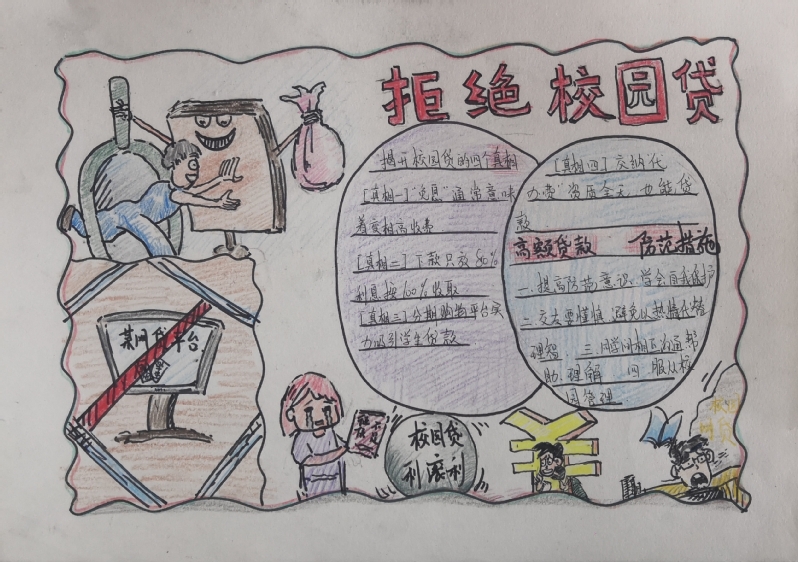 拒绝校园贷
揭开校园贷的四个真相
[真相一]"免息"通常意味
着变相高收费
[真相二]下款只及80%
利息按100%收取
[真相三]分期购物平台实
力吸引学生贷款
[真相四]交纳代
办费"资质全无 也能贷
款
高额贷款 防范措施
一.提高防范意识 学会自我保护
二.交友要谨慎 避免以热情代替
理智. 三.同学间相互沟通帮
助.理解 四.服从校
园管理
某网贷平台
校园贷
利滚利